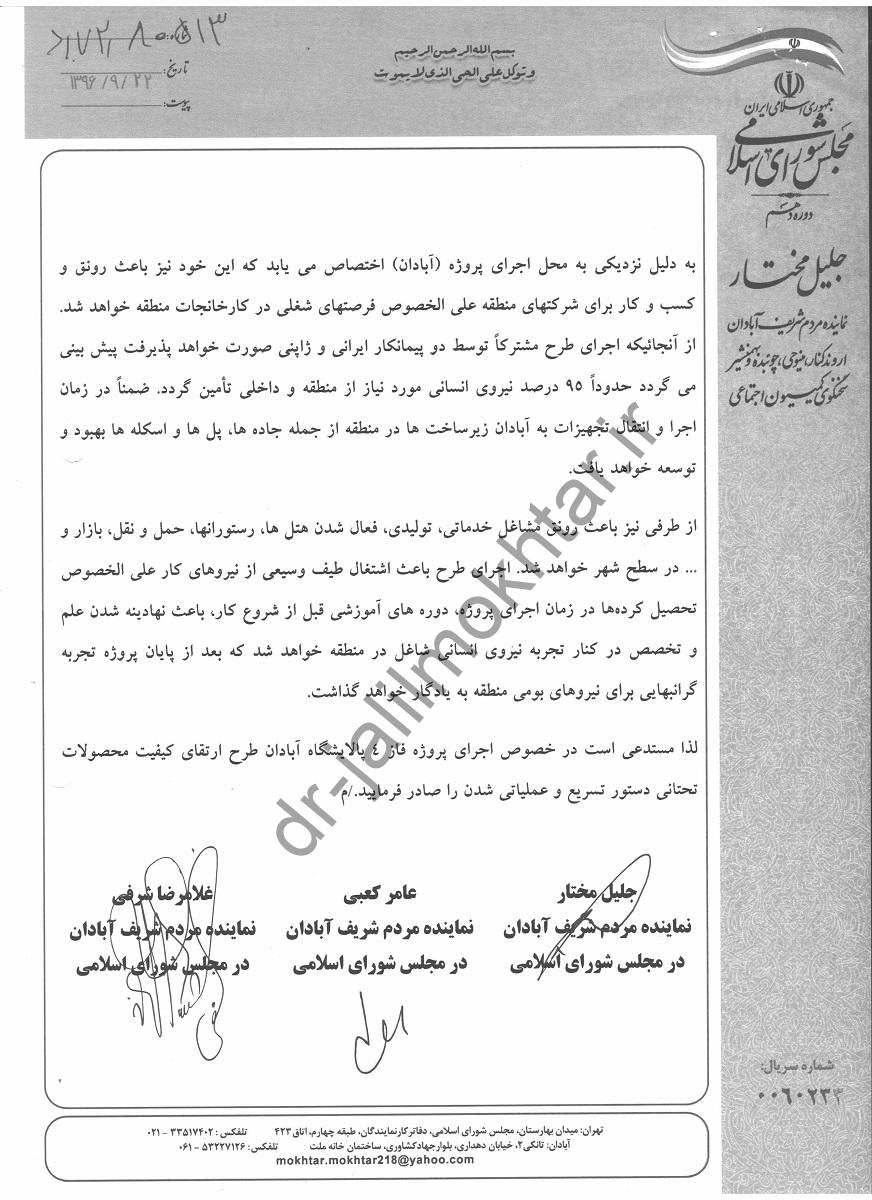 بسم الله الرحمن الرحیم
و توکل علی الحی الذی لا یموت
شماره:
تاریخ: ۱۳۹۶/۹/۲۲
پیوست:
جمهوری اسلامی ایران
مجلس شورای اسلامی
دوره دهم
جلیل مختار
نماینده مردم شریف آبادان
اروندکنار، مینوحی، چوئبده و بهمنشیر
سخنگوی کمیسیون اجتماعی
به دلیل نزدیکی به محل اجرای پروژه (آبادان) اختصاص می یابد که این خود نیز باعث رونق و
کسب و کار برای شرکتهای منطقه علی الخصوص فرصتهای شغلی در کارخانجات منطقه خواهد شد.
از آنجائیکه اجرای طرح مشترکاً توسط دو پیمانکار ایرانی و ژاپنی صورت خواهد پذیرفت پیش بینی
می گردد حدوداً ۹۵ درصد نیروی انسانی مورد نیاز از منطقه و داخلی تأمین گردد. ضمناً در زمان
اجرا و انتقال تجهیزات به آبادان زیرساخت ها در منطقه از جمله جاده ها، پل ها و اسکله ها بهبود و
توسعه خواهد یافت.
از طرفی نیز باعث رونق مشاغل خدماتی، تولیدی، فعال شدن هتل ها، رستورانها، حمل و نقل، بازار و
... در سطح شهر خواهد شد. اجرای طرح باعث اشتغال طیف وسیعی از نیروهای کار علی الخصوص
تحصیل کرده‌ها در زمان اجرای پروژه، دوره های آموزشی قبل از شروع کار، باعث نهادینه شدن علم
و تخصص در کنار تجربه نیروی انسانی شاغل در منطقه خواهد شد که بعد از پایان پروژه تجربه
گرانبهایی برای نیروهای بومی منطقه به یادگار خواهد گذاشت.
لذا مستدعی است در خصوص اجرای پروژه فاز ٤ پالایشگاه آبادان طرح ارتقای کیفیت محصولات
تحتانی دستور تسریع و عملیاتی شدن را صادر فرمایید./م
dr-jalilmokhtar.ir
جلیل مختار
نماینده مردم شریف آبادان
در مجلس شورای اسلامی
عامر کعبی
نماینده مردم شریف آبادان
در مجلس شورای اسلامی
غلامرضا شرفی
نماینده مردم شریف آبادان
در مجلس شورای اسلامی
شماره سریال:
۰۰۶۰۲۳۳
تهران: میدان بهارستان، مجلس شورای اسلامی، دفاتر کار نمایندگان، طبقه چهارم، اتاق ۴۲۳ تلفکس: ۳۳۵۱۷۴۰۲ - ۰۲۱
آبادان: تانکی ۲، خیابان دهداری، بلوار جهاد کشاورزی، ساختمان خانه ملت تلفکس: ۵۳۲۲۷۱۲۶ - ۰۶۱
mokhtar.mokhtar218@yahoo.com